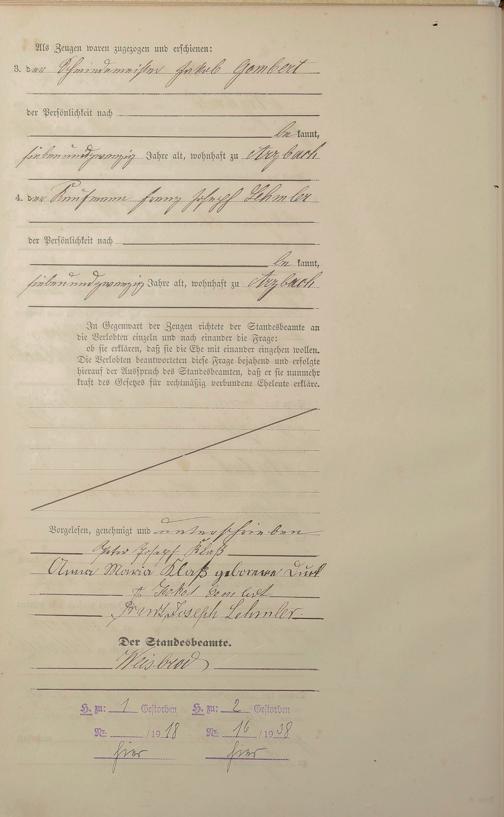 Als Zeugen waren zugezogen und erschienen:
3. der Schreinermeister Jakob Gombert
der Persönlichkeit nach
be kannt,
siebenundzwanzig Jahre alt, wohnhaft zu Arzbach
4. der Kaufmann Franz Joseph Lehmler
der Persönlichkeit nach
be kannt,
siebenundzwanzig Jahre alt, wohnhaft zu Arzbach
In Gegenwart der Zeugen richtete der Standesbeamte an
die Verlobten einzeln und nach einander die Frage:
ob sie erklären, daß sie die Ehe mit einander eingehen wollen.
Die Verlobten beantworteten diese Frage bejahend und erfolgte
hierauf der Ausspruch des Standesbeamten, daß er sie nunmehr
kraft des Gesetzes für rechtmäßig verbundene Eheleute erkläre.
Vorgelesen, genehmigt und unterschrieben
Peter Joseph Klaß
Anna Maria Klaß geborene
Franz Joseph Lehmler
Der Standesbeamte.
Weisbrod
H. zu: 1 Gestorben H. zu: 2 Gestorben
Nr. /1918 Nr. 16 /1938
hier hier